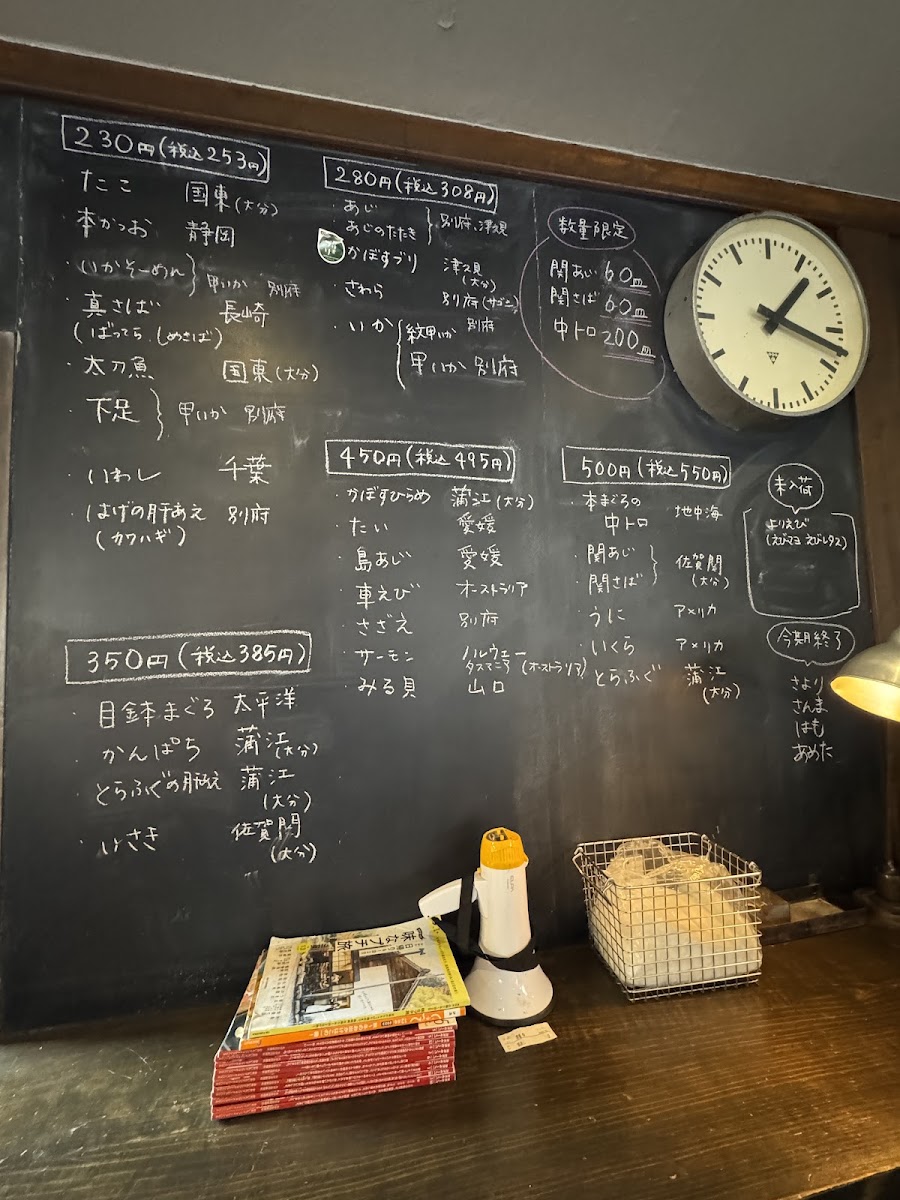 230円(税込253円)
・たこ 国東(大分)
・本かつお 静岡
・いかそーめん} 甲いか 別府
・真さば 長崎
(ばってら、しめさば)
・太刀魚 国東(大分)
・下足} 甲いか 別府
・いわし 千葉
・はげの肝あえ 別府
(カワハギ)
280円(税込308円)
・あじ
・あじのたたき} 別府、津久見
かぼすブリ 津久見
(大分)
・さわら 別府(サゴシ)
・いか{紋甲いか 別府
甲いか 別府
数量限定
関あじ 60皿
関さば 60皿
中トロ 200皿
350円(税込385円)
・目鉢本まぐろ 太平洋
・かんぱち 蒲江(大分)
・とらふぐの肝和え 蒲江
(大分)
・いさき 佐賀関
(大分)
450円(税込495円)
・かぼすひらめ 蒲江(大分)
・たい 愛媛
・島あじ 愛媛
・車えび オーストラリア
・さざえ 別府
・サーモン ノルウェー
タスマニア(オーストラリア)
・みる貝 山口
500円(税込550円)
・本まぐろの 地中海
中トロ
・関あじ
・関さば} 佐賀関
(大分)
・うに アメリカ
・いくら アメリカ
・とらふぐ 蒲江
(大分)
未入荷
よりえび
(えびマヨ えびレタス)
今期終了
さより
さんま
はも
あめた
味なプチ旅